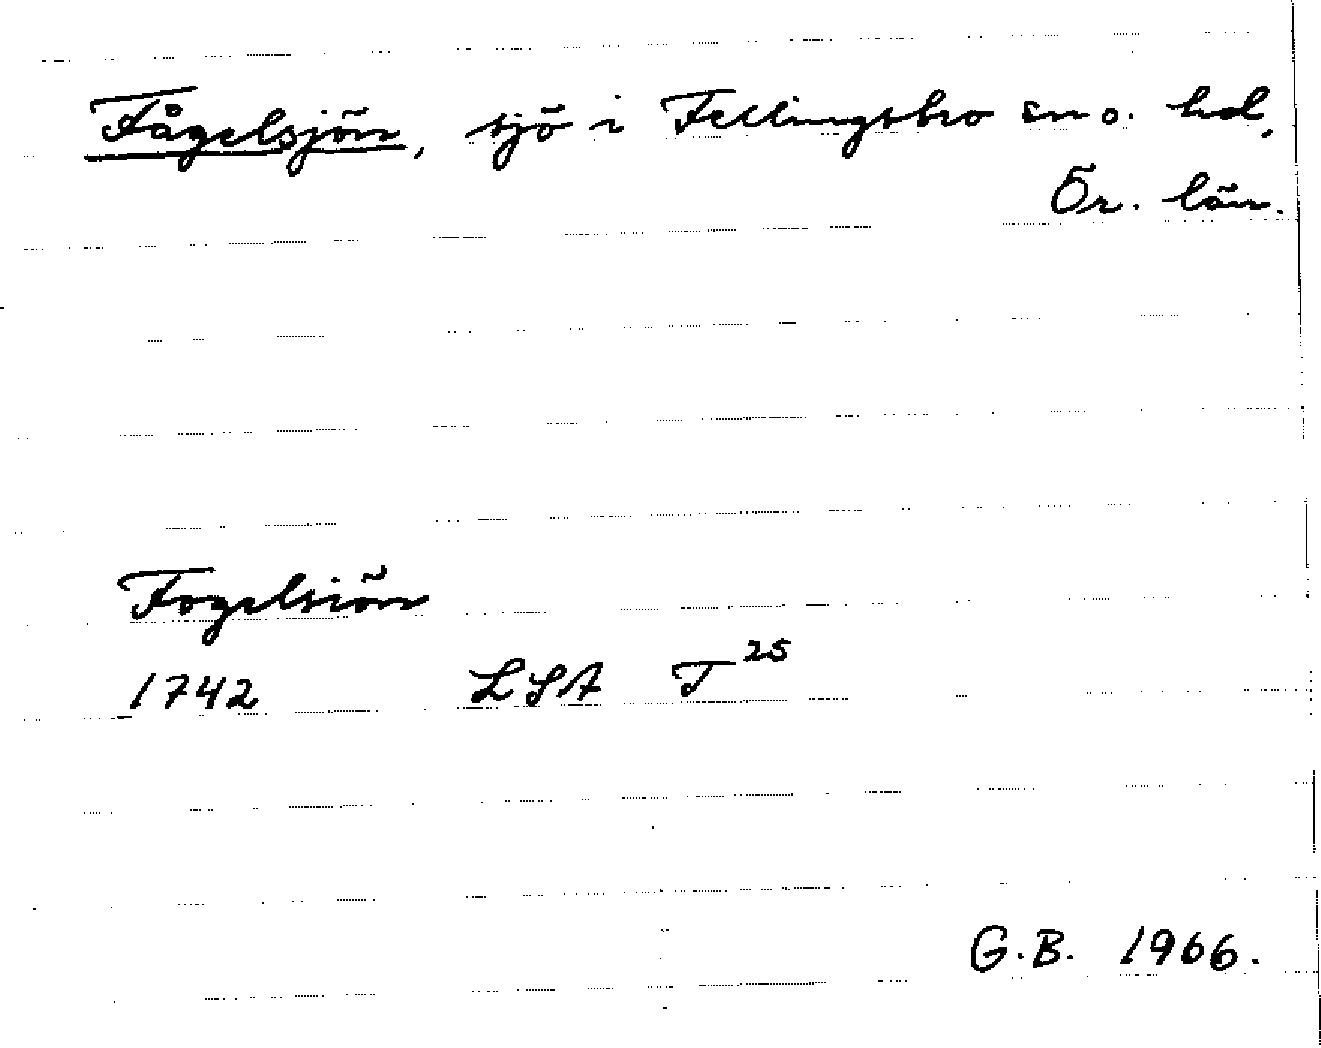 Fågelsjön, sjö i Fellingsbro sn o. hd,
Ör. län.
Fogelsiön
1742 LSA T 25
G.B. 1966.